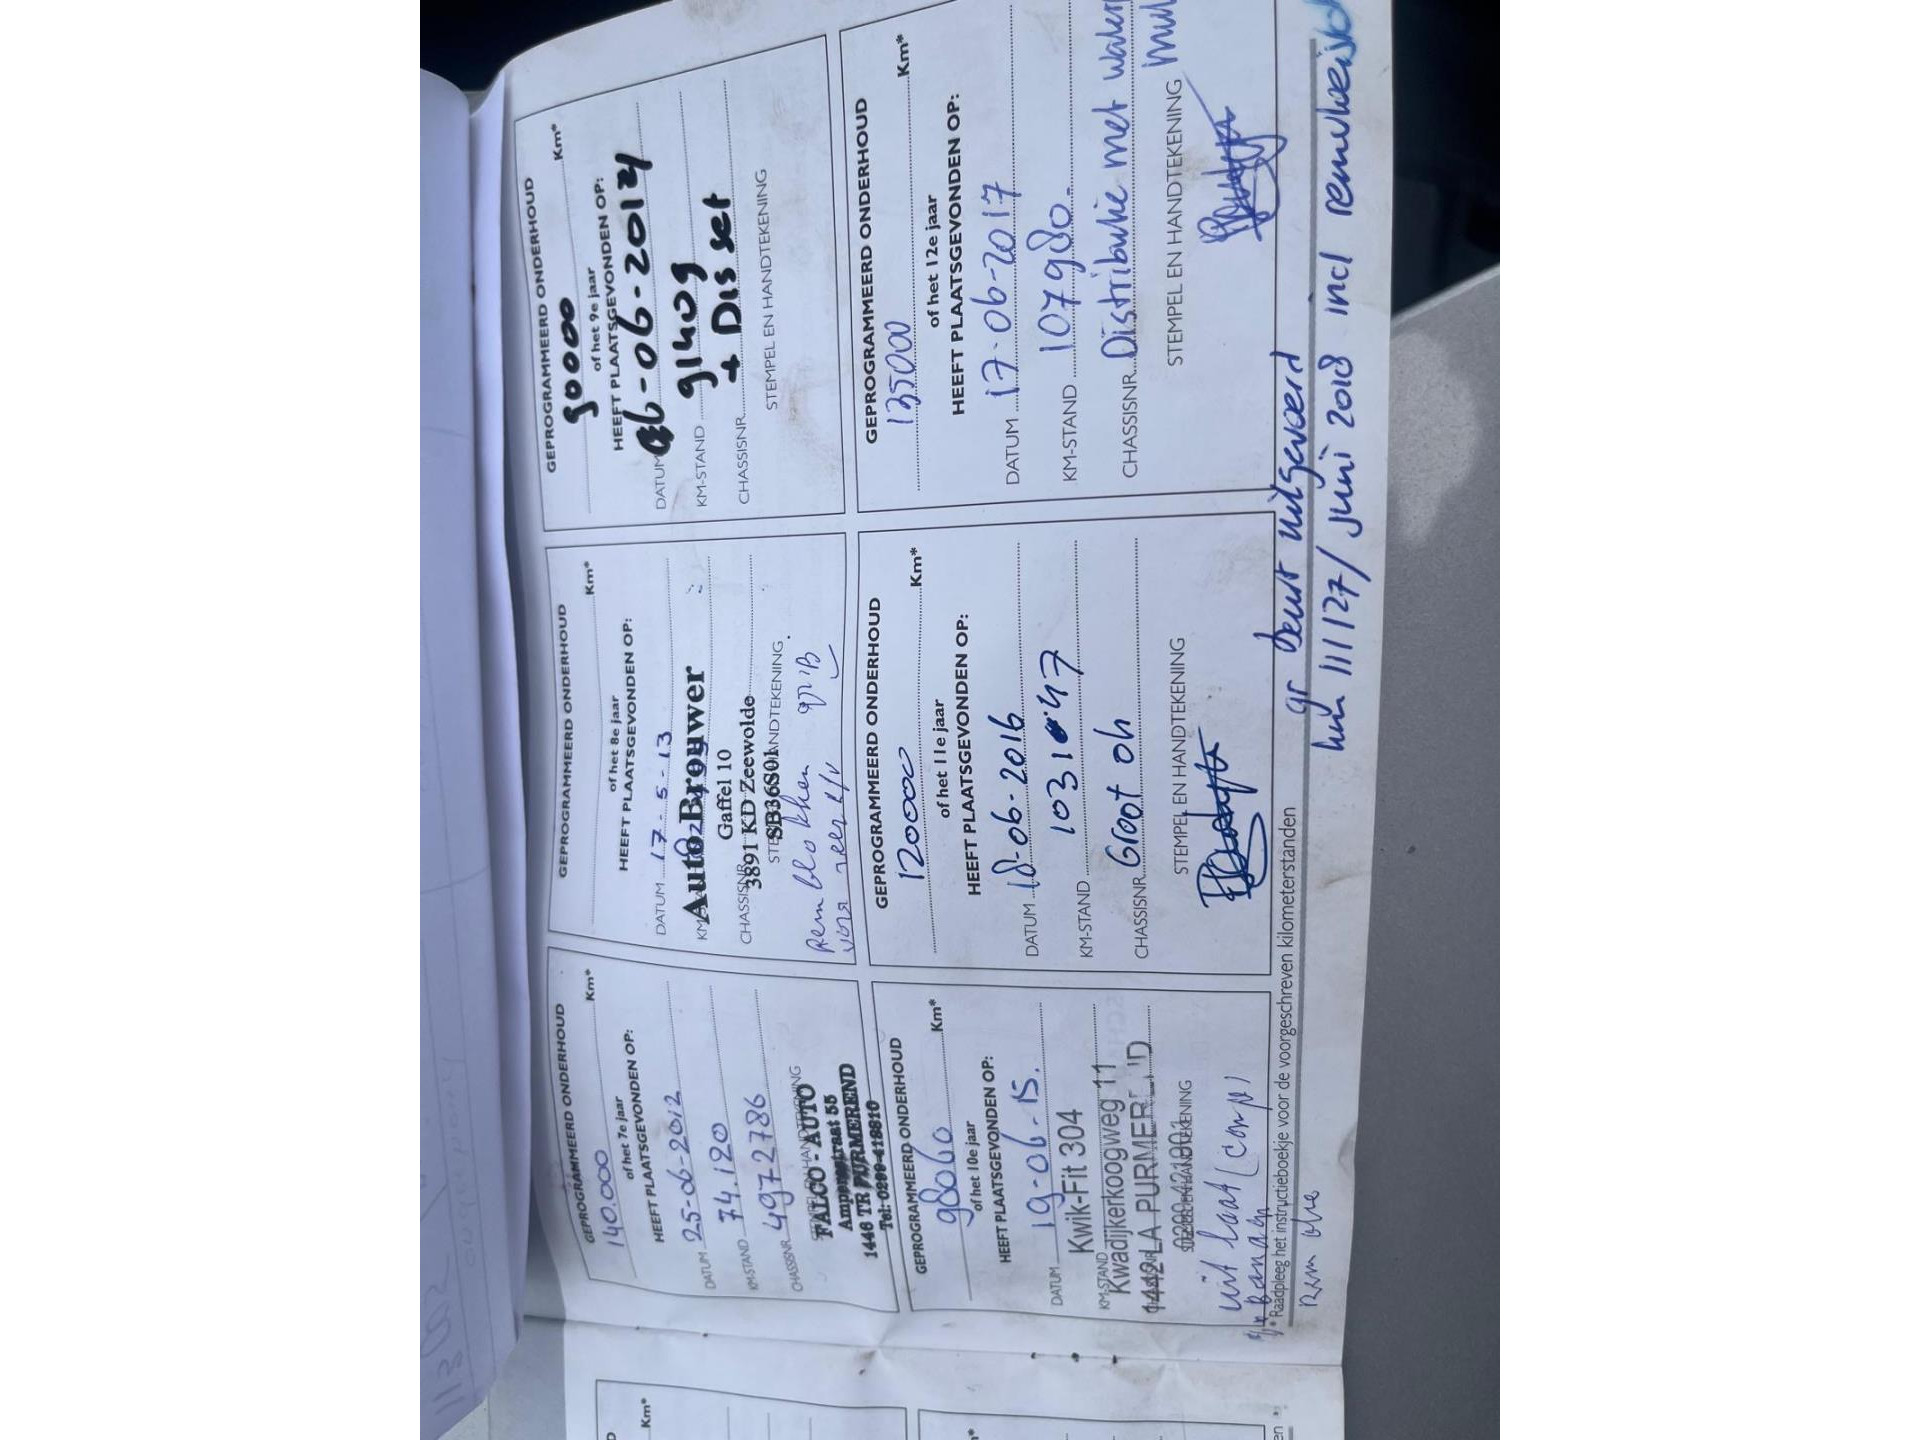 GEPROGRAMMEERD ONDERHOUD
140.000 Km*
of het 7e jaar
HEEFT PLAATSGEVONDEN OP:
DATUM 25-06-2012
KM-STAND 74.120
CHASSISNR. 4972786
STEMPEL EN HANDTEKENING
FALCO - AUTO
Ampèrestraat 55
1446 TR PURMEREND
Tel: 0299-418810
GEPROGRAMMEERD ONDERHOUD
Km*
of het 8e jaar
HEEFT PLAATSGEVONDEN OP:
DATUM 17-5-13
KM-STAND
Auto Brouwer
Gaffel 10
CHASSISNR.
3891 KD Zeewolde
STEMPEL EN HANDTEKENING
SB36S01
Remblokken
GEPROGRAMMEERD ONDERHOUD
90000 Km*
of het 9e jaar
HEEFT PLAATSGEVONDEN OP:
DATUM 06-06-2014
KM-STAND 91409
CHASSISNR. + Dis set
STEMPEL EN HANDTEKENING
GEPROGRAMMEERD ONDERHOUD
98060 Km*
of het 10e jaar
HEEFT PLAATSGEVONDEN OP:
DATUM 19-06-15.
Kwik-Fit 304
KM-STAND
Kwadijkerkoogweg 11
1442 LA PURMEREND
STEMPEL EN HANDTEKENING
uitlaat (compl)
Rem olie
GEPROGRAMMEERD ONDERHOUD
120000 Km*
of het 11e jaar
HEEFT PLAATSGEVONDEN OP:
DATUM 18-06-2016
KM-STAND 103147
CHASSISNR. Groot oh
STEMPEL EN HANDTEKENING
GEPROGRAMMEERD ONDERHOUD
135000 Km*
of het 12e jaar
HEEFT PLAATSGEVONDEN OP:
DATUM 17-06-2017
KM-STAND 107980.
CHASSISNR. Distributie met
STEMPEL EN HANDTEKENING
* Raadpleeg het instructieboekje voor de voorgeschreven kilometerstanden
gr beurt uitgevoerd
km 111127/ juni 2018 incl
Km*